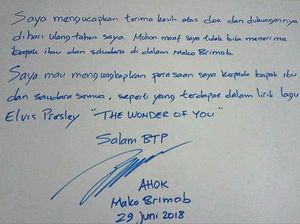 Saya mengucapkan terima kasih atas doa dan dukungannya
dihari ulang tahun saya. Mohon maaf saya tidak bisa menerima
bapak ibu dan saudara di dalam Mako Brimob
Saya mau mengungkapkan perasaan saya kepada bapak ibu
dan saudara semua, seperti yang terdapat dalam lirik lagu
Elvis Presley "THE WONDER OF YOU"
Salam BTP
AHOK
Mako Brimob
29 Juni 2018